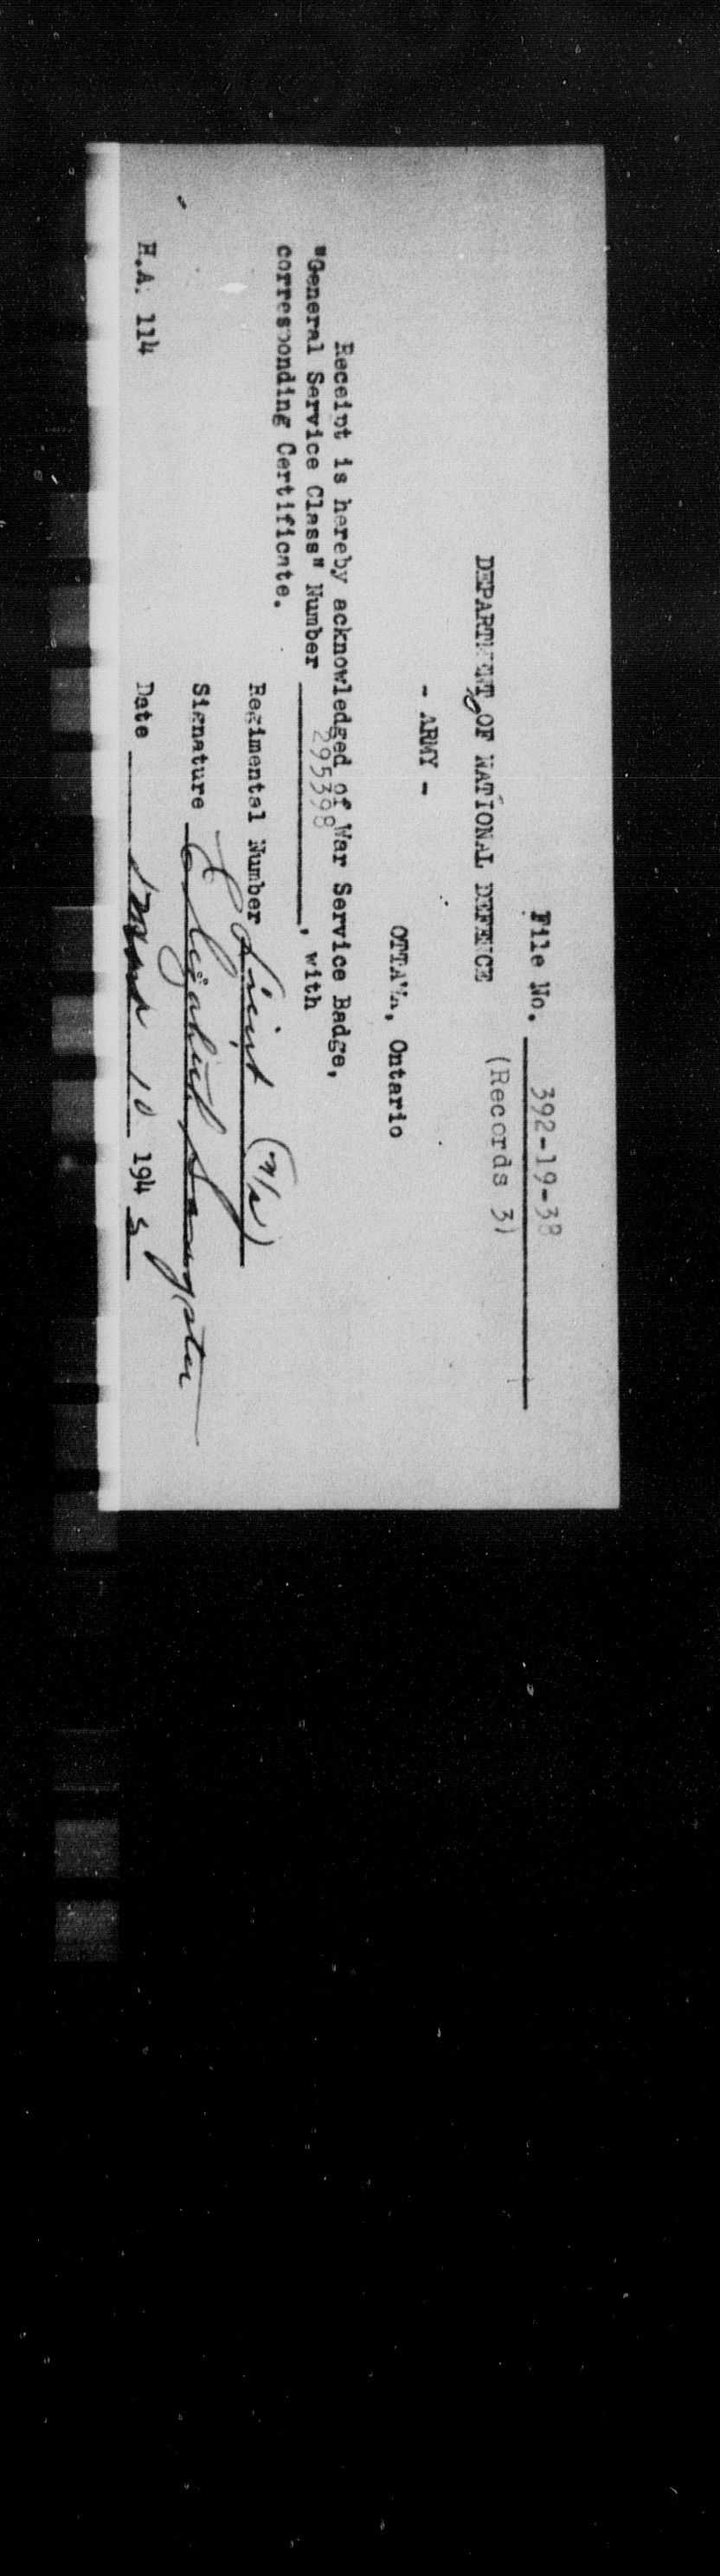 File No. 392-19-38
(Records 3)
DEPARTMENT OF NATIONAL DEFENCE
- ARMY -
OTTAWA, Ontario
Receipt is hereby acknowledged of War Service Badge,
"General Service Class" Number 295398, with
corresponding Certificate.
Regimental Number Lieut (N/S)
Signature Elizabeth Sangster
H.A. 114 Date Mar 10 1945